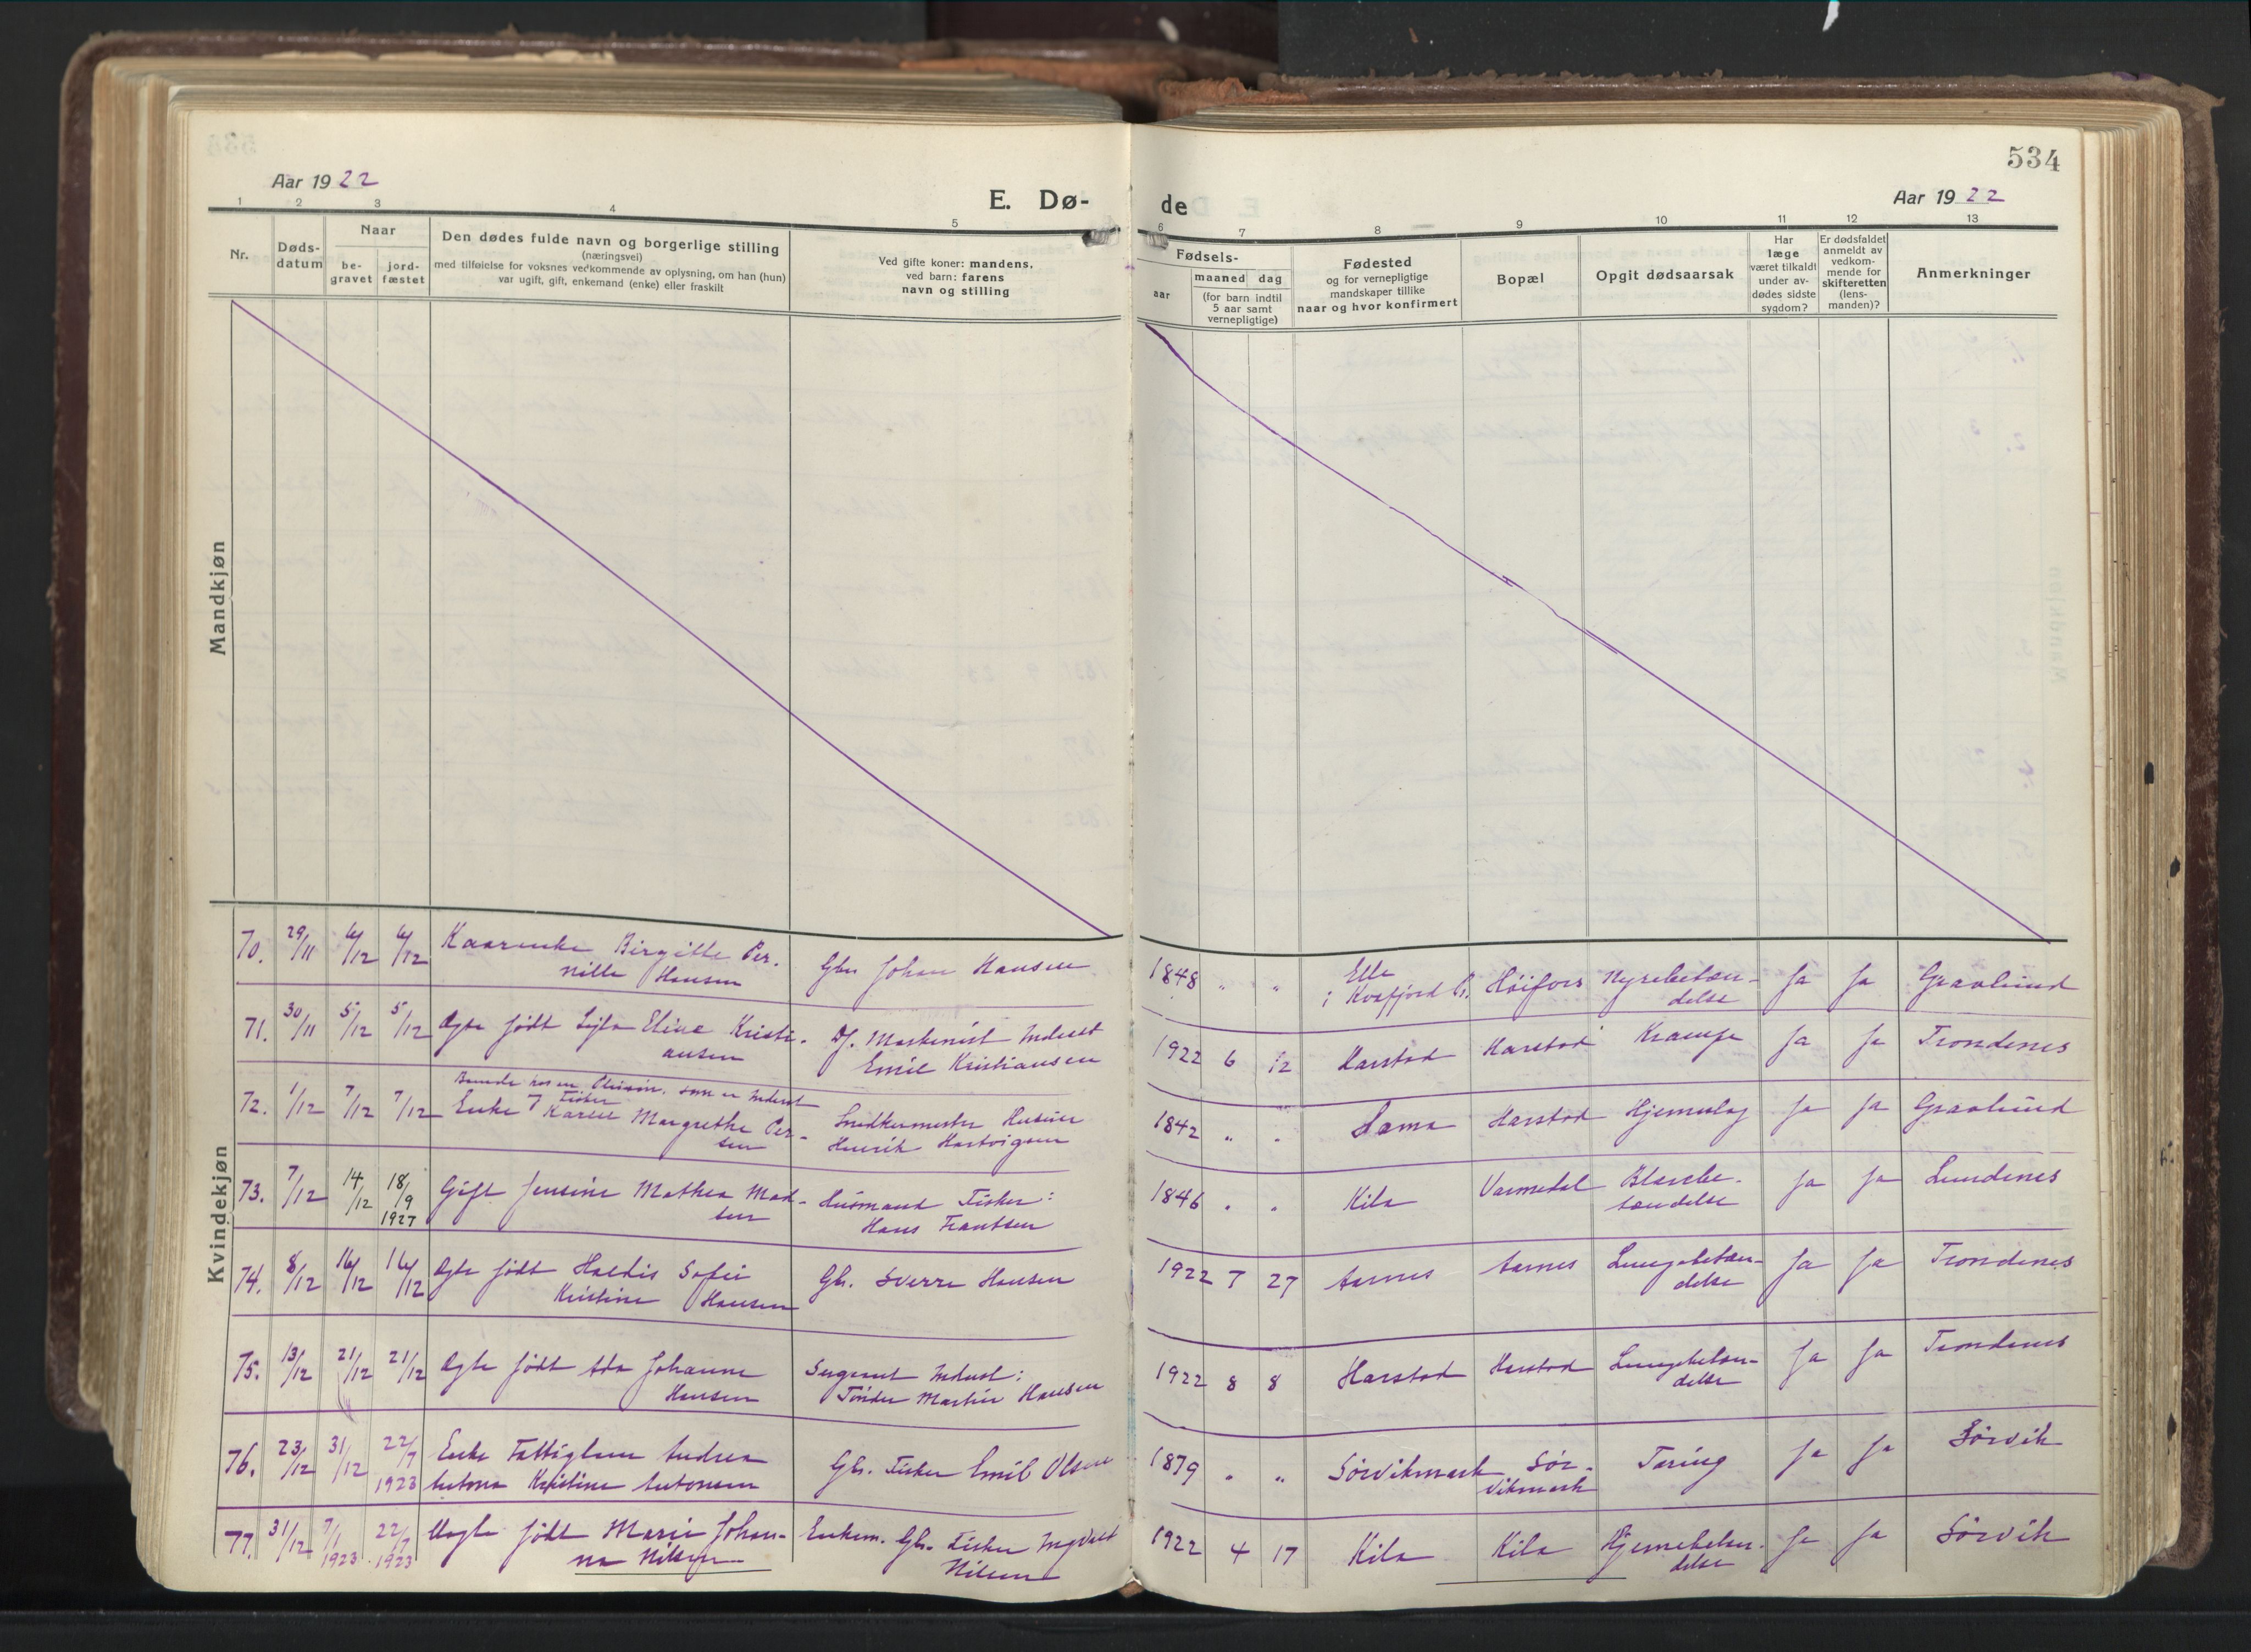 534
Aar 1922
E. Dø-
de
Aar 1922
1 2 3 4 5 6 7 8 9 10 11 12 13
Nr.
Døds-
datum
Naar
be-
gravet
jord-
fæstet
Den dødes fulde navn og borgerlige stilling
(næringsvei)
med tilføielse for voksnes vedkommende av oplysning, om han (hun)
var ugift, gift, enkemand (enke) eller fraskilt
Ved gifte koner: mandens,
ved barn: farens
navn og stilling
Fødsels-
aar
maaned dag
(for barn indtil
5 aar samt
vernepligtige)
Fødested
og for vernepligtige
mandskaper tillike
naar og hvor konfirmert
Bopæl
Opgit dødsaarsak
Har
læge
været tilkaldt
under av-
dødes sidste
sygdom?
Er dødsfaldet
anmeldt av
vedkom-
mende for
skifteretten
(lens-
manden)?
Anmerkninger
Mandkjøn
Kvindekjøn
70. 29/11 6/12 6/12 Birgitte Per-
nille Hansen
Gbr. Johan Hansen
1848 " " Elle
i Kvæfjord P. Høifors Nyrebetæn-
delse
Ja Ja Gravlund
71. 30/11 5/12 5/12 Ægte født Eline Kristi-
ansen
Maskinist Inderst
Emil Kristiansen
1922 6 12 Harstad Harstad Krampe Ja Ja Trondenes
72. 1/12 7/12 7/12 som er Inderst
Fisker
Enke Karen Margrethe Per-
sen
Snedkermester
Henrik Hartvigsen
1842 " " Sama Harstad Hjerneslag Ja Ja Gravlund
73. 7/12 14/12 18/9
1927
Gift Jensine Mathea Mad-
sen
Husmand Fisker:
Hans Frantsen
1846 " " Kila Varmedal Blærebe-
tændelse
Ja Ja Lundenes
74. 8/12 16/12 16/12 Ægte født Haldis Sofie
Kristine Hansen
Gbr. Sverre Hansen
1922 7 27 Aarnes Aarnes Lungebetæn-
delse
Ja Ja Trondenes
75. 13/12 21/12 21/12 Ægte født Ada Johanne
Hansen
Sergeant Inderst:
Martin Hansen
1922 8 8 Harstad Harstad Lungebetæn-
delse
Ja Ja Trondenes
76. 23/12 31/12 22/7
1923
Enke Fattiglem Andrea
Antona Kristine Antonsen
Gbr. Fisker Emil Olsen
1879 " " Sørvikmark Sør-
vikmark
Tæring Ja Ja Sørvik
77. 31/12 7/1
1923
22/7
1923
Uægte født Marie Johan-
na Nilsen
Enkem. Gbr. Fisker Ingvald
Nilsen
1922 4 17 Kila Kila Hjernebetæn-
delse
Ja Ja Sørvik